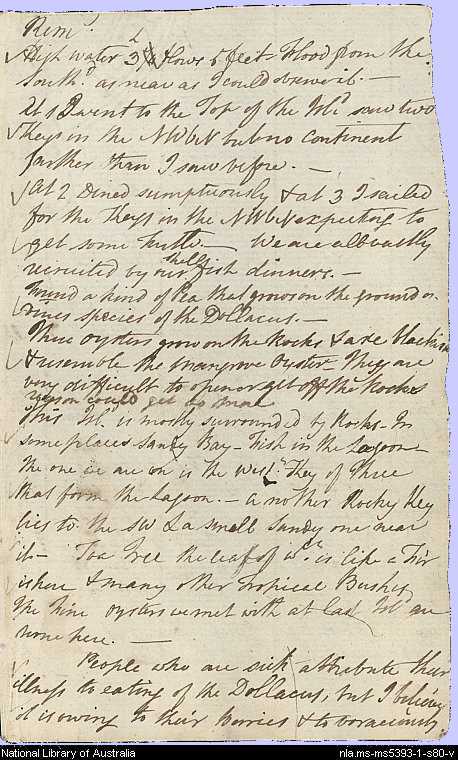 Rems.
High water 3 flows 5 feet flood from the
South.d as near as I could observe it. —
At 1 I went to the Top of the Isl.d saw two
Keys in the NWbN but no continent
farther than I saw before. —
At 2 Dined sumptuously & at 3 I sailed
for the Keys in the NWbN expecting to
get some Turtle — We are all vastly
recruited by our shell fish dinners. —
Found a kind of Pea that grows on the ground or
vines species of the Dollacus. —
These Oysters grow on the Rocks & are blackish
& resemble the Mangrove Oyster — They are
very difficult to open or get off the Rocks
reason could get no more
This Isl. is mostly surrounded by Rocks — In
some places Sandy Bay — Fish in the Lagoon —
The one we are on is the West.n Key of Three
that form the Lagoon. — another Rocky Key
lies to the SW & a small sandy one near
it — Toa Tree the leaf of w.ch is like a Fir
is here & many other Tropical Bushes
The fine oysters we met with at last Isl.d are
none here. —
People who are sick attribute their
illness to eating of the Dollacus, but I believe
it is owing to their Berries & to voraciously
National Library of Australia
nla.ms-ms5393-1-s80-v